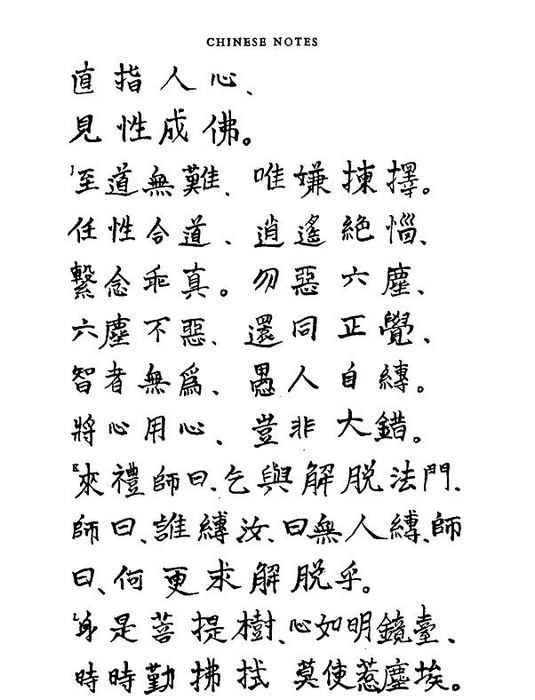 CHINESE NOTES
直指人心、
見性成佛。
至道無難、唯嫌揀擇。
任性合道、逍遙絕惱、
繫念乖真。勿惡六塵、
六塵不惡、還同正覺、
智者無爲、愚人自縛。
將心用心、豈非大錯。
來禮師曰、乞與解脫法門、
師曰、誰縛汝、曰無人縛、師
曰、何更求解脫乎。
身是菩提樹、心如明鏡臺、
時時勤拂拭 莫使惹塵埃。